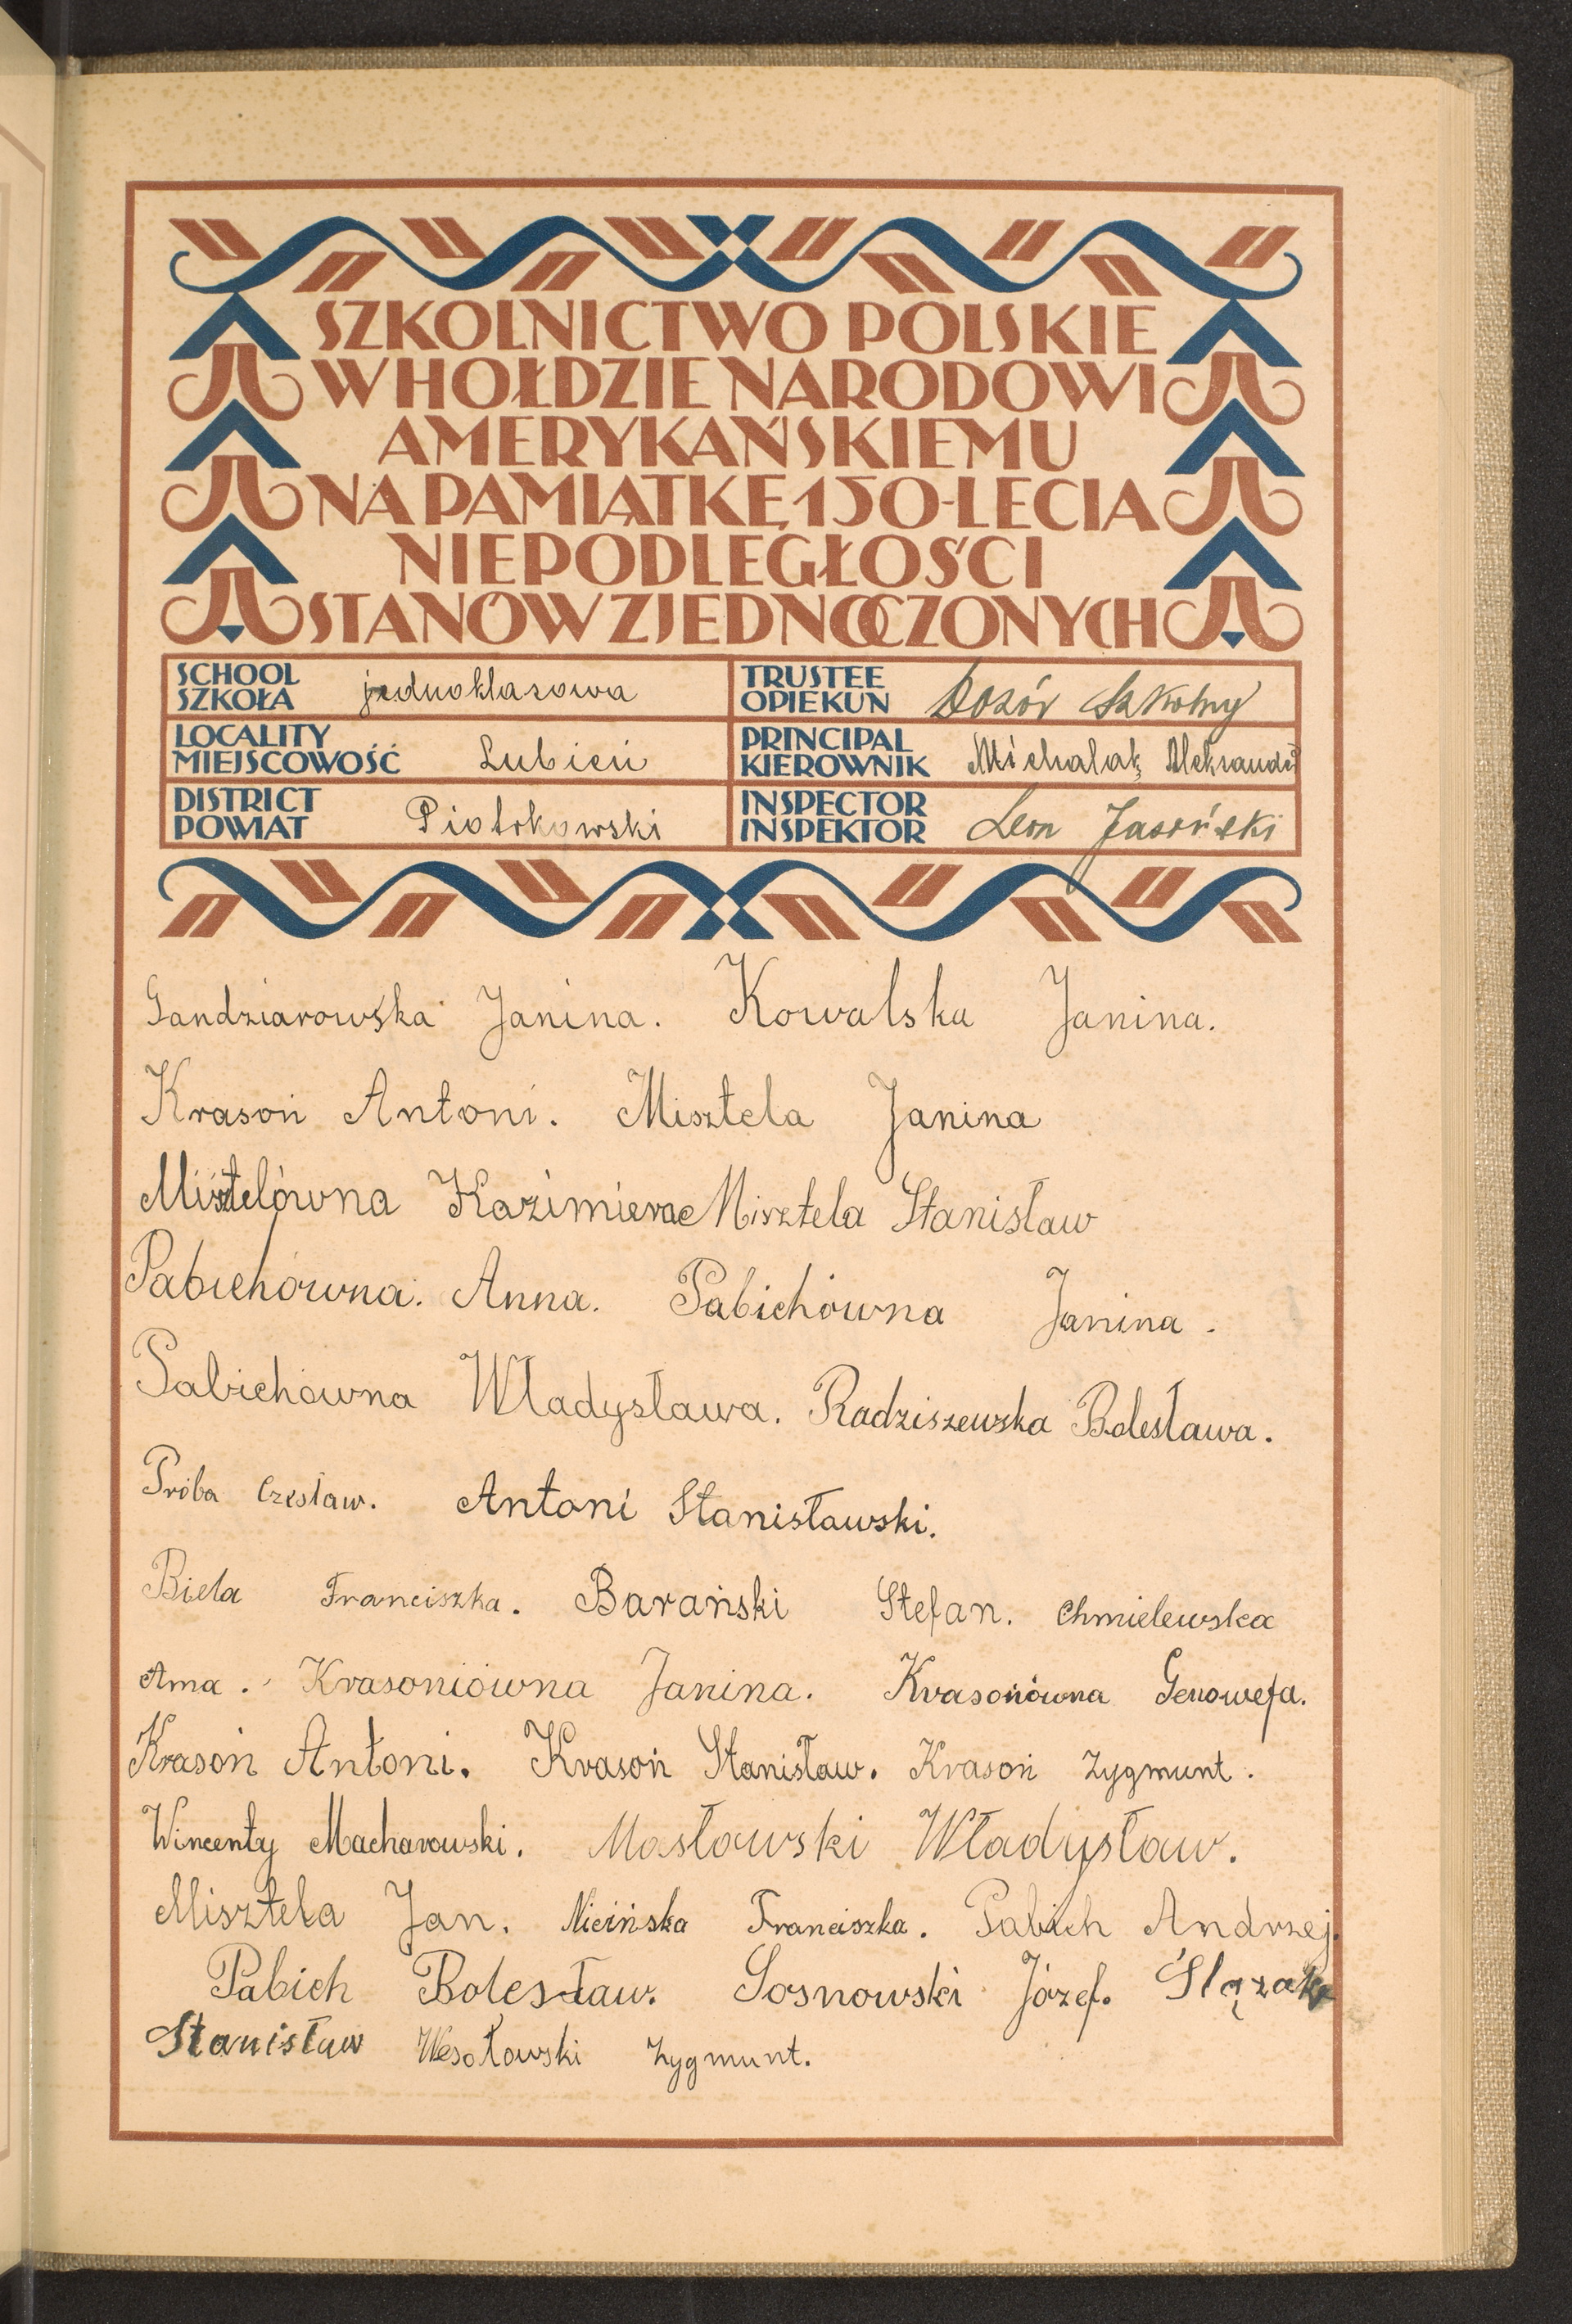 SZKOLNICTWO POLSKIE
W HOŁDZIE NARODOWI
AMERYKAŃSKIEMU
NA PAMIĄTKĘ 150-LECIA
NIEPODLEGŁOŚCI
STANÓW ZJEDNOCZONYCH
SCHOOL
SZKOŁA jednoklasowa
TRUSTEE
OPIEKUN Dozór Szkolny
LOCALITY
MIEJSCOWOŚĆ Lubień
PRINCIPAL
KIEROWNIK Michalak Aleksander
DISTRICT
POWIAT Piotrkowski
INSPECTOR
INSPEKTOR Leon Jasiński
Gandziarowska Janina. Kowalska Janina.
Krasoń Antoni. Misztela Janina
Misztelówna Kazimiera Misztela Stanisław
Pabichówna. Anna. Pabichówna Janina.
Pabichówna Władysława. Radziszewska Bolesława.
Próba Czesław. Antoni Stanisławski.
Biela Franciszka. Barański Stefan. Chmielewska
Anna. Krasoniówna Janina. Krasonówna Genowefa.
Krasoń Antoni. Krasoń Stanisław. Krasoń Zygmunt.
Wincenty Macharowski. Masłowski Władysław.
Misztela Jan. Nicińska Franciszka. Pabich Andrzej.
Pabich Bolesław. Sosnowski Józef. Ślązak
Stanisław Wesołowski Zygmunt.